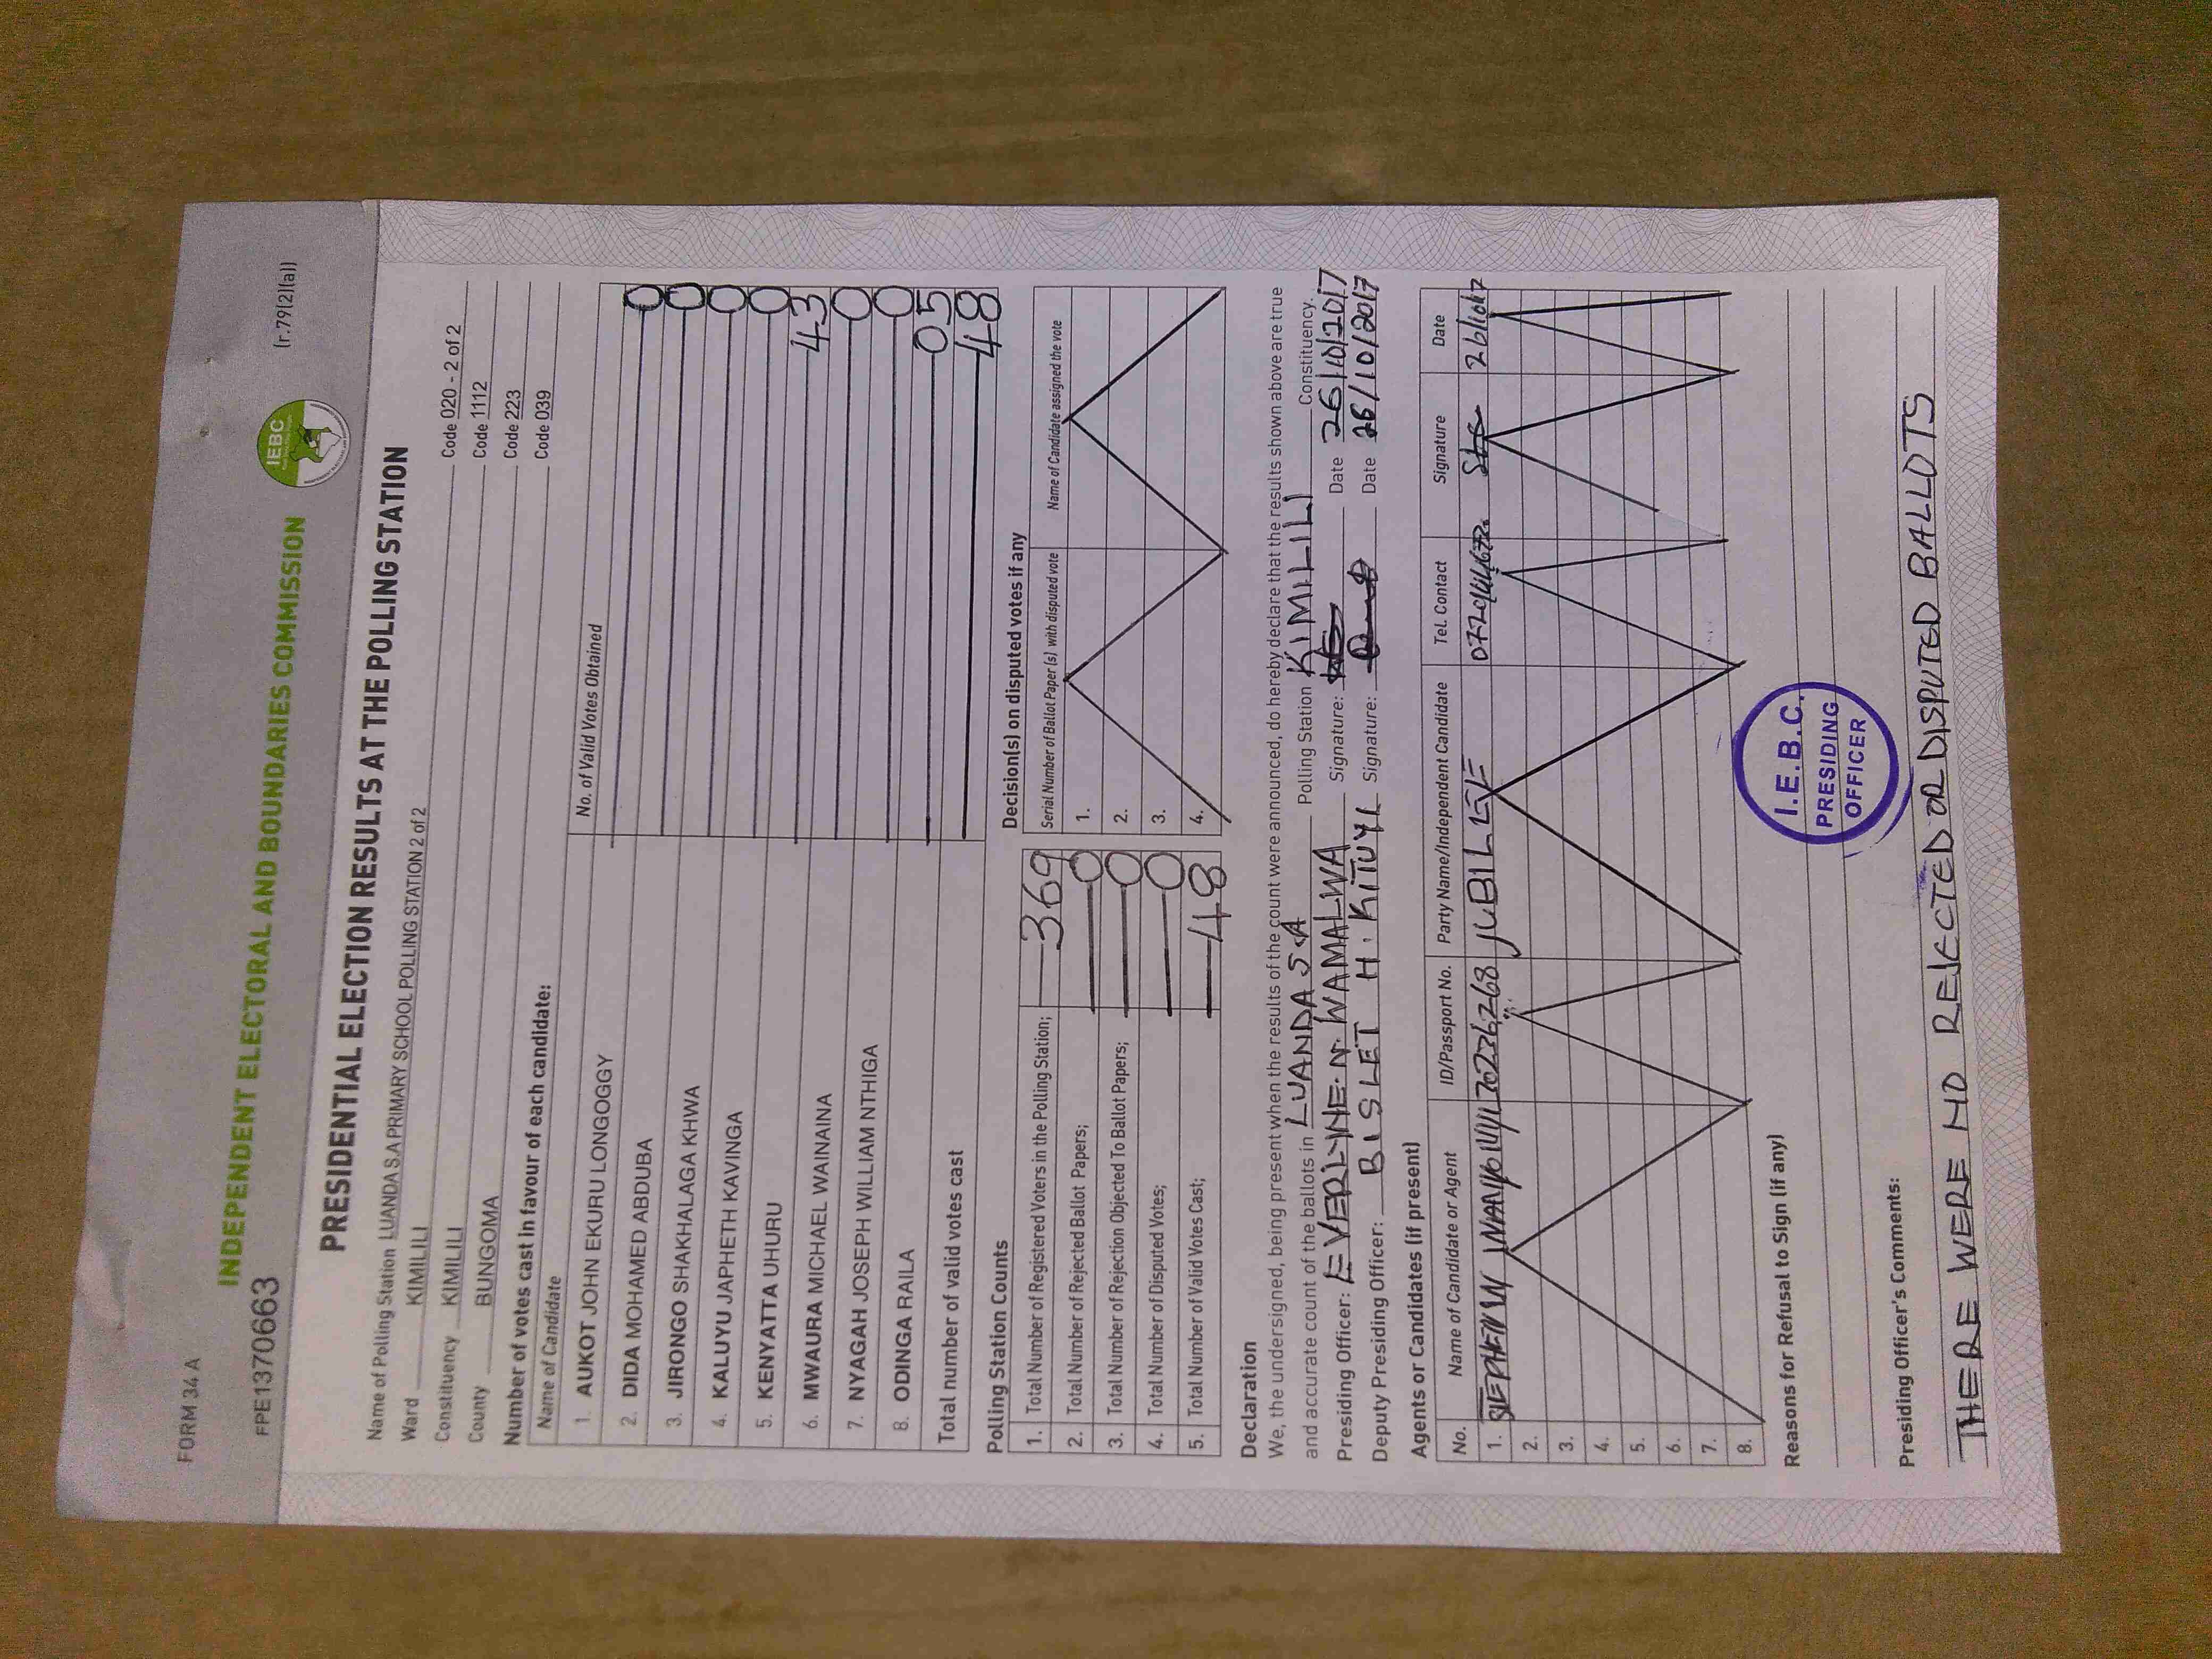 FORM 34 A
(r.79(2)(a))
FPE1370663
INDEPENDENT ELECTORAL AND BOUNDARIES COMMISSION
IEBC
PRESIDENTIAL ELECTION RESULTS AT THE POLLING STATION
Name of Polling Station LUANDA S.A PRIMARY SCHOOL POLLING STATION 2 of 2 Code 020 - 2 of 2
Ward KIMILILI Code 1112
Constituency KIMILILI Code 223
County BUNGOMA Code 039
Number of votes cast in favour of each candidate:
Name of Candidate No. of Valid Votes Obtained
1. AUKOT JOHN EKURU LONGOGGY 0
2. DIDA MOHAMED ABDUBA 0
3. JIRONGO SHAKHALAGA KHWA 0
4. KALUYU JAPHETH KAVINGA 0
5. KENYATTA UHURU 43
6. MWAURA MICHAEL WAINAINA 0
7. NYAGAH JOSEPH WILLIAM NTHIGA 0
8. ODINGA RAILA 05
Total number of valid votes cast 48
Polling Station Counts
1. Total Number of Registered Voters in the Polling Station; 369
2. Total Number of Rejected Ballot Papers; 0
3. Total Number of Rejection Objected To Ballot Papers; 0
4. Total Number of Disputed Votes; 0
5. Total Number of Valid Votes Cast; 48
Decision(s) on disputed votes if any
Serial Number of Ballot Paper(s) with disputed vote Name of Candidate assigned the vote
1.
2.
3.
4.
Declaration
We, the undersigned, being present when the results of the count were announced, do hereby declare that the results shown above are true
and accurate count of the ballots in LUANDA S.A Polling Station KIMILILI Constituency.
Presiding Officer: EVERLYNE. N. WAMALWA Signature: Date 26/10/2017
Deputy Presiding Officer: BISLET H. KITUYI Signature: Date 26/10/2017
Agents or Candidates (if present)
No. Name of Candidate or Agent ID/Passport No. Party Name/Independent Candidate Tel. Contact Signature Date
1. STEPHEN JUBILEE
2.
3.
4.
5.
6.
7.
8.
Reasons for Refusal to Sign (if any)
I.E.B.C.
PRESIDING
OFFICER
Presiding Officer's Comments:
THERE WERE NO REJECTED OR DISPUTED BALLOTS